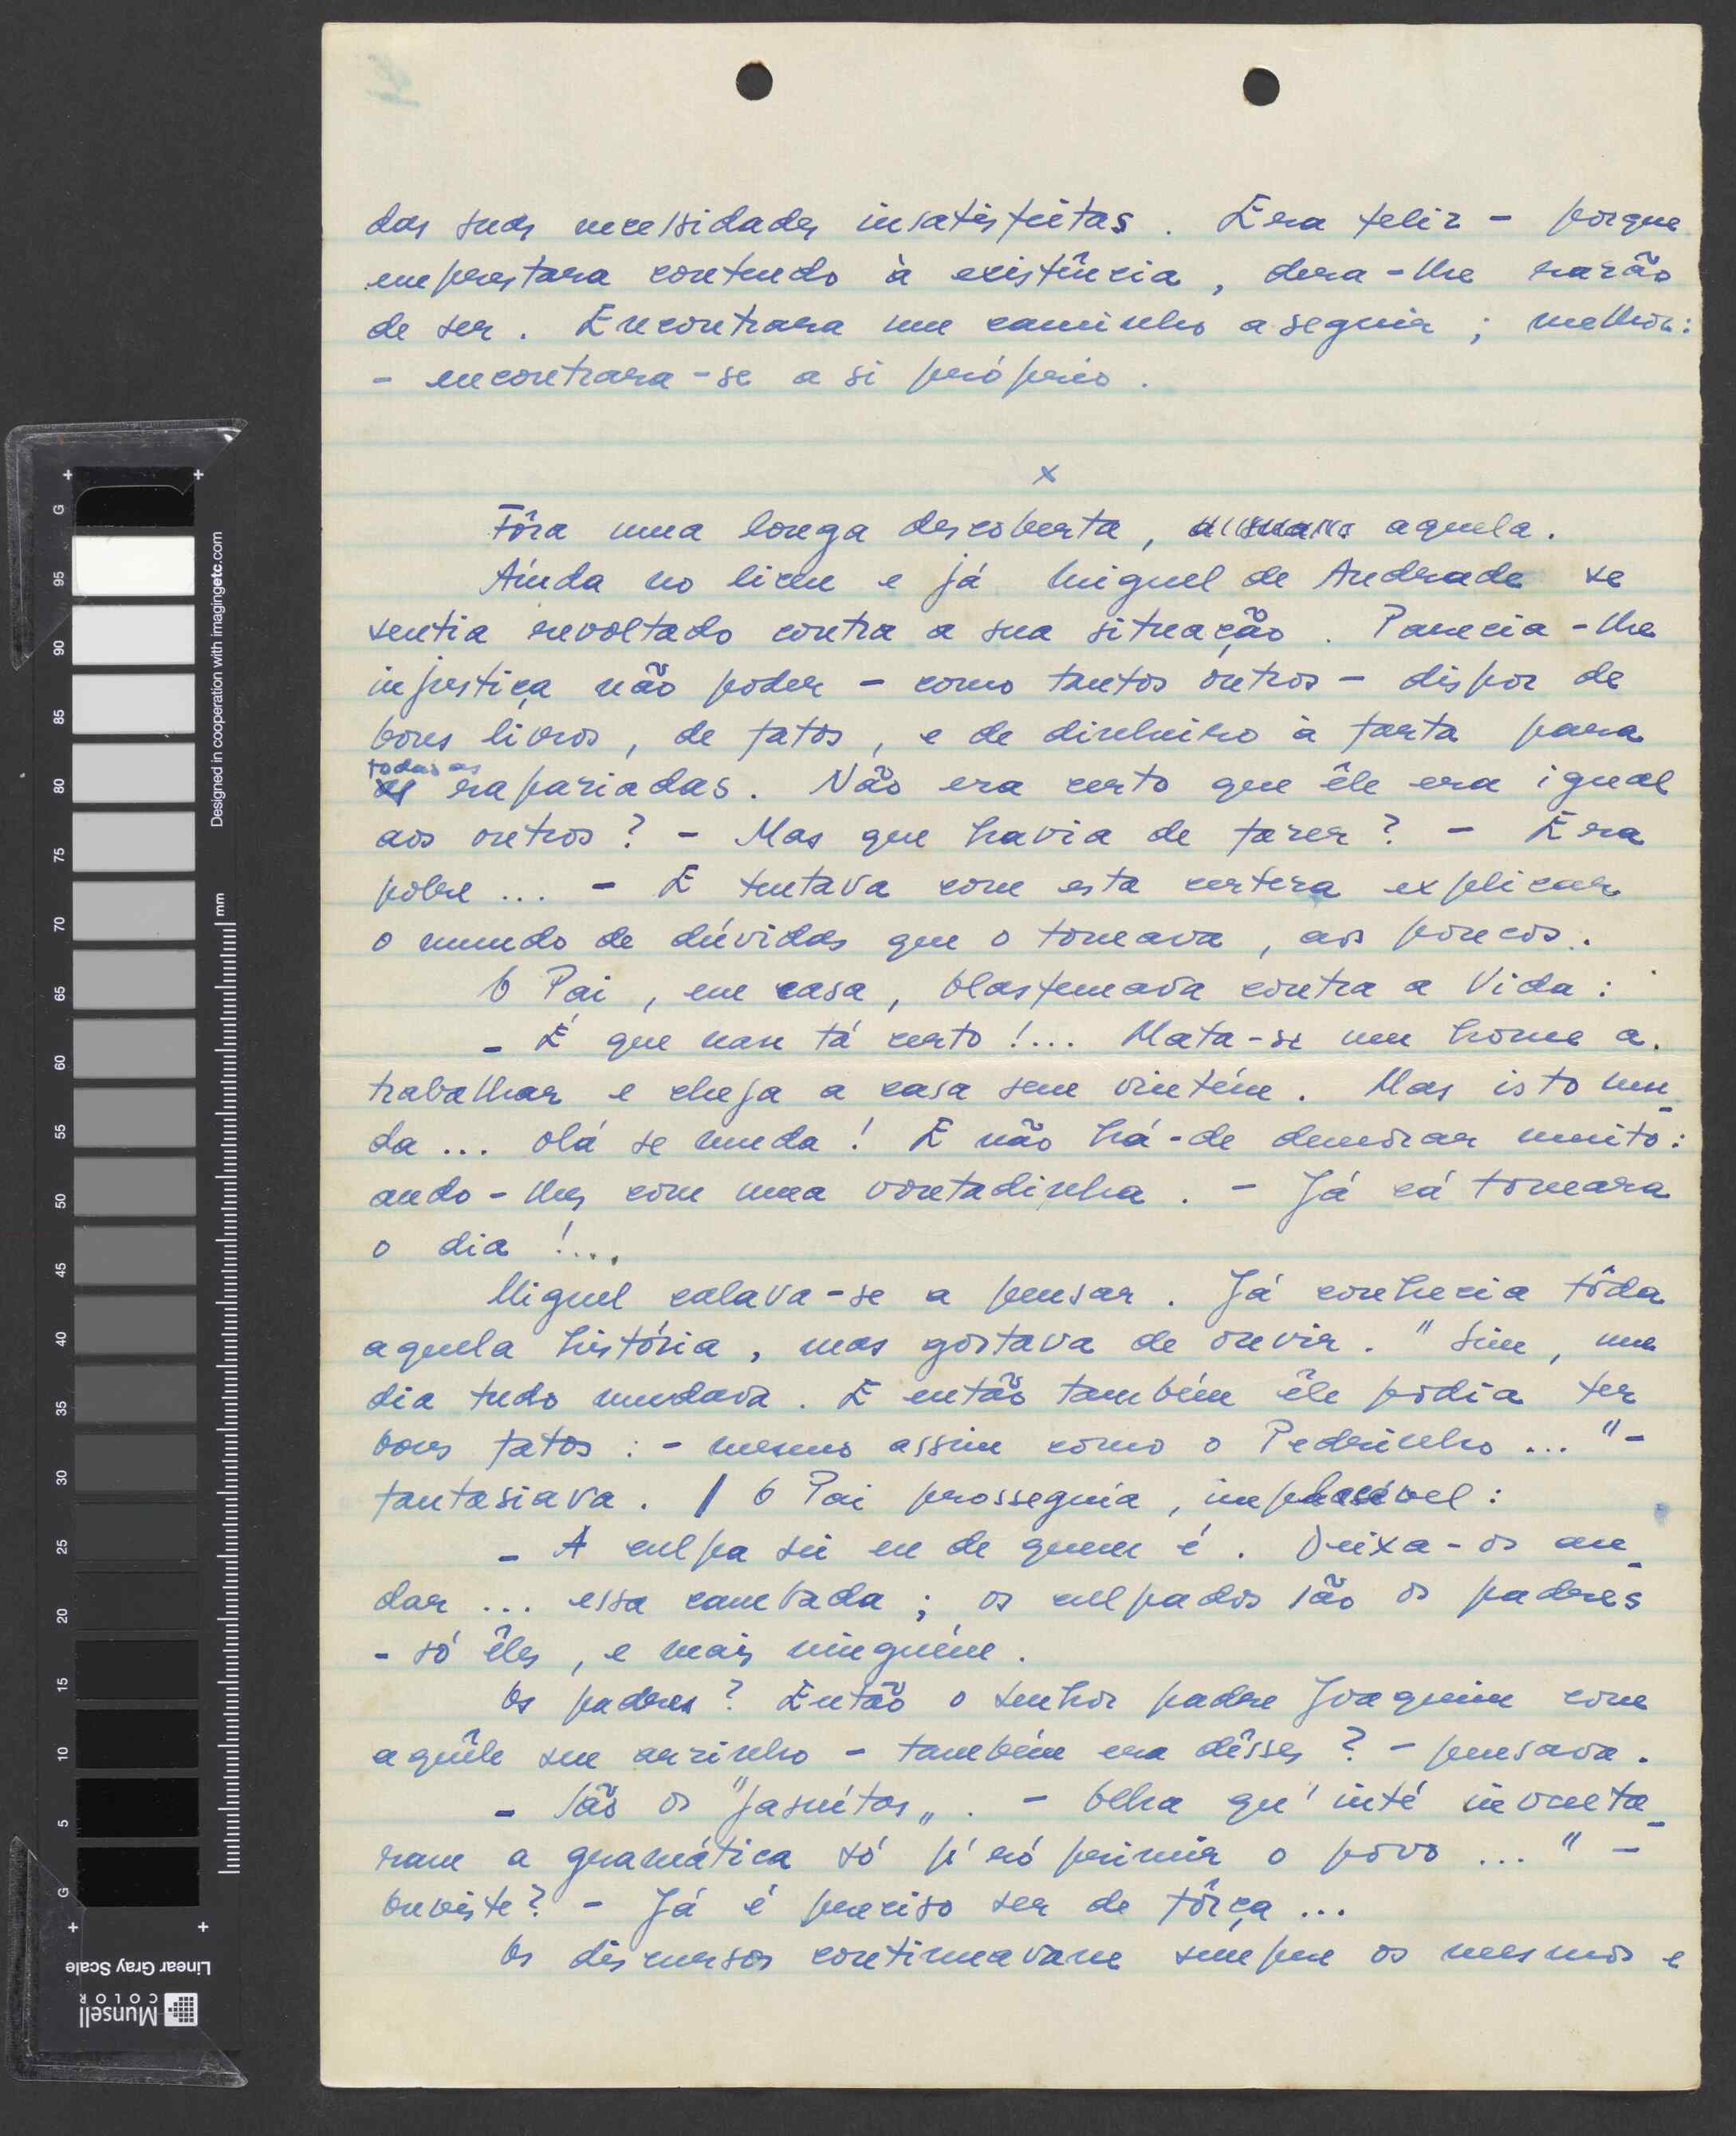 das suas necessidades insatisfeitas. Era feliz - porque
emprestara conteudo à existência, dera-lhe razão
de ser. Encontrara um caminho a seguir; melhor:
- encontrara-se a si próprio.
x
Fôra uma longa descoberta, aquela.
Aínda no liceu e já Miguel de Andrade se
sentia revoltado contra a sua situação. Parecia-lhe
injustiça não poder - como tantos outros - dispor de
bons livros, de fatos, e de dinheiro à farta para
todas as
as rapaziadas. Não era certo que êle era igual
aos outros? - Mas que havia de fazer? - Era
pobre ... - E tentava com esta certeza explicar
o mundo de dúvidas que o tomava, aos poucos.
O Pai, em casa, blasfemava contra a Vida:
- É que nan tá certo!... Mata-se um home a
trabalhar e chega a casa sem vintém. Mas isto mu-
da ... olá se muda! E não há-de demorar muito:
ando-lhes com uma vontadinha. - Já cá tomara
o dia!...
Miguel calava-se a pensar. Já conhecia tôda
aquela história, mas gostava de ouvir. "Sim, um
dia tudo mudava. E então também êle podia ter
bons fatos: - mesmo assim como o Pedrinho ..." -
fantasiava. | O Pai prosseguia, implacável:
- A culpa sei eu de quem é. Deixa-os an-
dar ... essa cambada; os culpados são os padres
- só êles, e mais ninguém.
Os padres? Então o senhor padre Joaquim com
aquêle seu arzinho - também era dêsses? - pensava.
- São os "jasuítas". - Olha qu' inté inventa-
ram a gramática só p'ró primir o povo ..." -
Ouviste? - Já é preciso ser de fôrça ...
Os discursos continuavam sempre os mesmos e
Designed in cooperation with imagingetc.com
mm
G
95
90
85
80
75
70
65
60
55
50
45
40
35
30
25
20
15
10
5
G
Linear Gray Scale
Munsell
COLOR